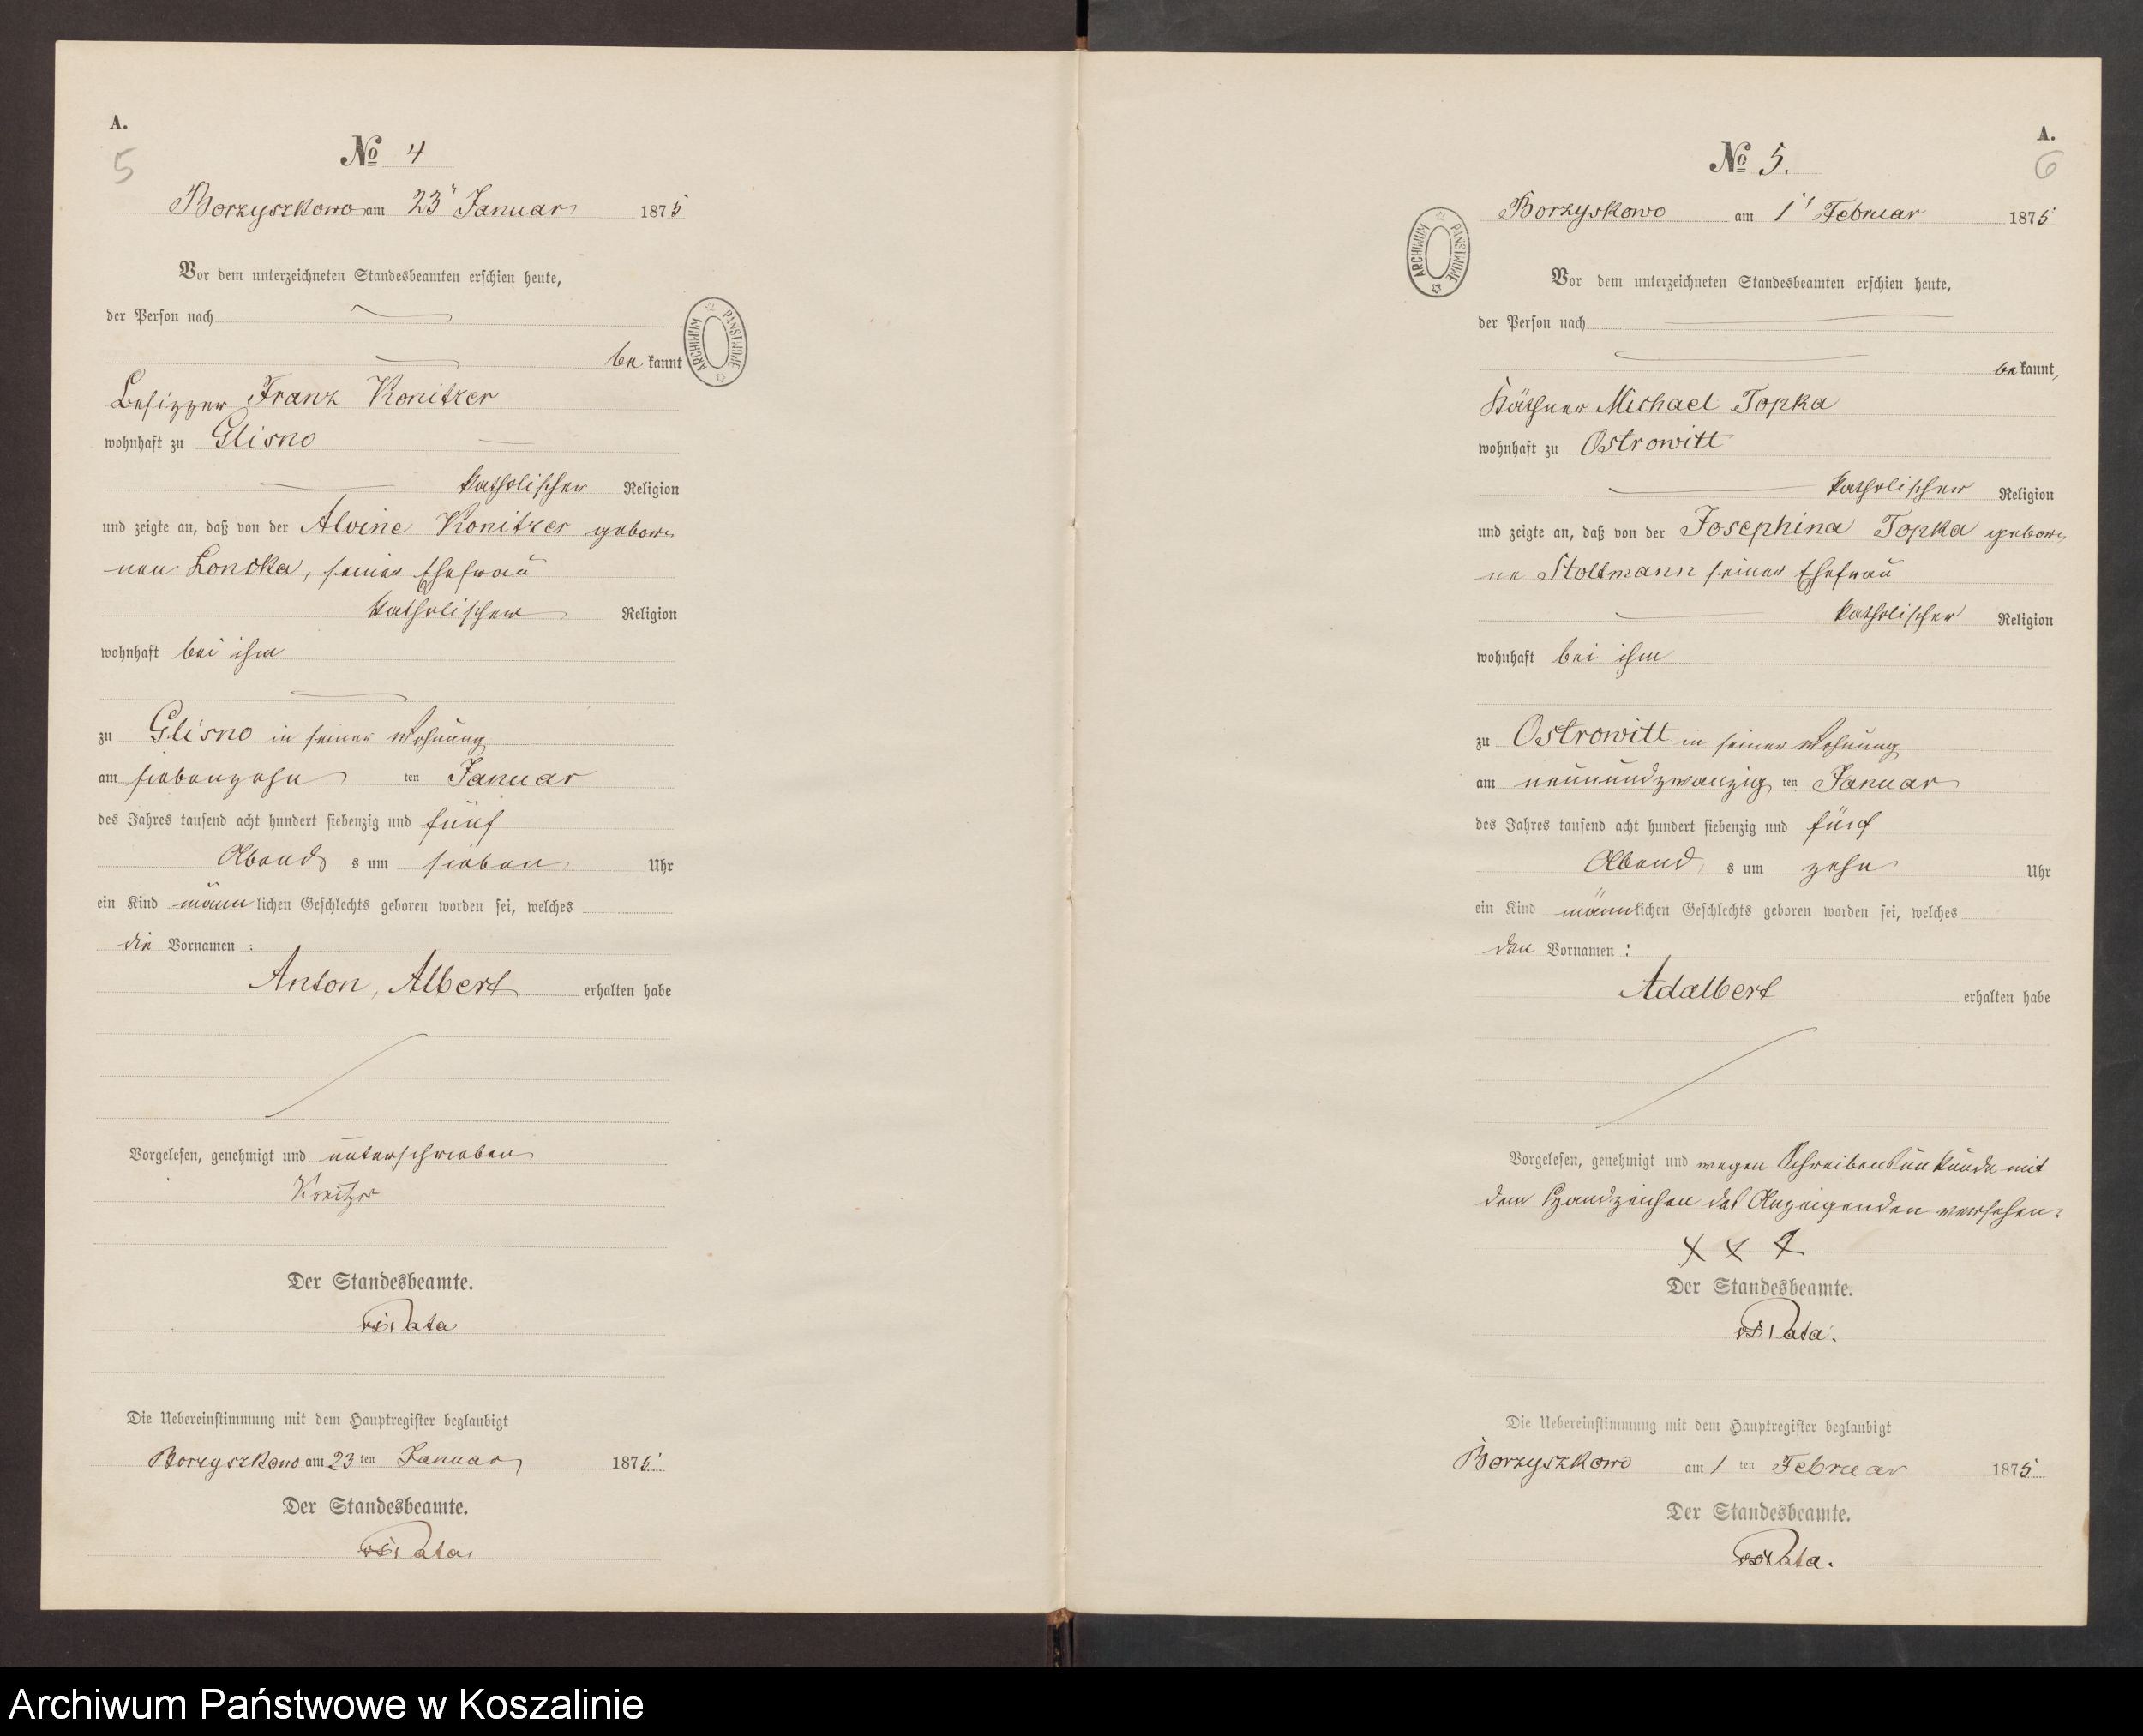 A.
5
№ 4
Borzyszkowo am 23 Januar 1875
Vor dem unterzeichneten Standesbeamten erschien heute,
der Person nach
be kannt
Besizzer Franz Konitzer
wohnhaft zu Glisno
katholischer Religion
und zeigte an, daß von der Alvine Konitzer gebore
nen Lonska, seiner Ehefrau
katholischer Religion
wohnhaft bei ihm
zu Glisno in seiner Wohnung
am siebenzehn ten Januar
des Jahres tausend acht hundert siebenzig und fünf
Abends s um sieben Uhr
ein Kind männ lichen Geschlechts geboren worden sei, welches
die Vornamen :
Anton, Albert erhalten habe
Vorgelesen, genehmigt und unterschrieben
Konitzer
Der Standesbeamte.
Die Uebereinstimmung mit dem Hauptregister beglaubigt
Borzyszkowo am 23 ten Januar 1875
Der Standesbeamte.
ARCHIWUM PAŃSTWOWE
A.
6
№ 5.
Borzyskowo am 1 Februar 1875
Vor dem unterzeichneten Standesbeamten erschien heute,
der Person nach
be kannt,
Käthner Michael Topka
wohnhaft zu Ostrowitt
katholischer Religion
und zeigte an, daß von der Josephina Topka gebore
ne Stoltmann seiner Ehefrau
katholischer Religion
wohnhaft bei ihm
zu Ostrowitt in seiner Wohnung
am neunundzwanzig ten Januar
des Jahres tausend acht hundert siebenzig und fünf
Abend s um zehn Uhr
ein Kind männlichen Geschlechts geboren worden sei, welches
den Vornamen :
Adalbert erhalten habe
Vorgelesen, genehmigt und wegen Schreibensunkunde mit
dem Handzeichen des Anzeigenden versehen.
X X X
Der Standesbeamte.
Die Uebereinstimmung mit dem Hauptregister beglaubigt
Borzyszkowo am 1 ten Februar 1875
Der Standesbeamte.
ARCHIWUM PAŃSTWOWE
Archiwum Państwowe w Koszalinie